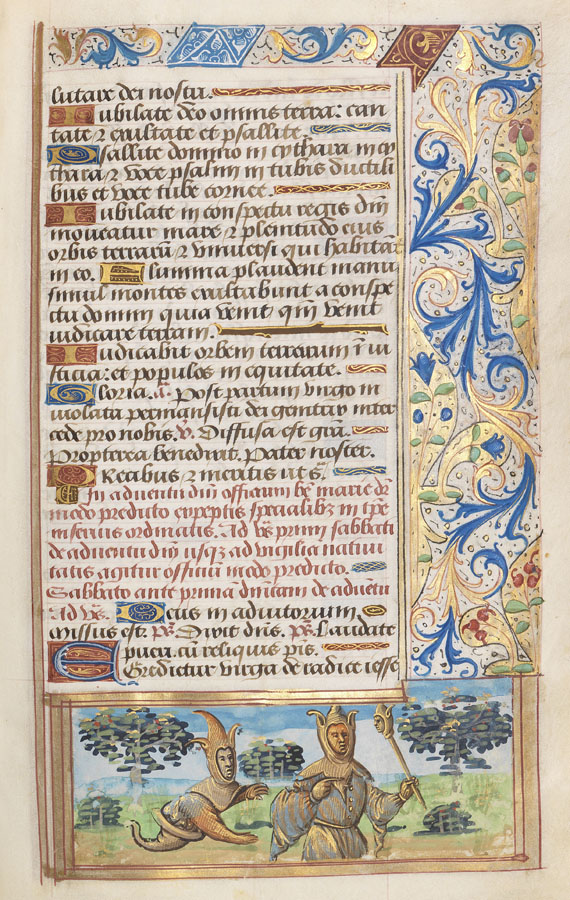 lutare dei nostri.
Iubilate deo omnis terra: can
tate ⁊ exultate et psallite.
Psallite domino in cythara in cy
thara ⁊ voce psalmi in tubis ductili
bus et voce tube cornee.
Iubilate in conspectu regis dñi
moveatur mare ⁊ plenitudo eius
orbis terrarū ⁊ universi qui habitāt
in eo. Flumina plaudent manu
simul montes exultabunt a conspe
ctu domini quia venit qm̄ venit
iudicare terram.
Iudicabit orbem terrarum ī iu
sticia: et populos in equitate.
Gloria. a. Post partum virgo in
violata permansisti dei genitrix inter
cede pro nobis. v. Diffusa est grā.
Propterea benedixit. Pater noster.
Precibus ⁊ meritis ut s.
In adventu dñi officium bē marie dr̄
modo predicto exceptis specialibz in ipē
servicio ordinatis. Ad vs̄ primi sabbati
de adventu dñi usqz ad vigiliā nativi
tatis agitur officiū modo predicto.
Sabbato ante primā dnicam de advētu
Ad vs̄. Deus in adiutorium
Missus est. ps̄. Dixit dñs. ps̄. Laudate
pueri. cū reliquis ps̄.
Egredietur virga de radice iesse